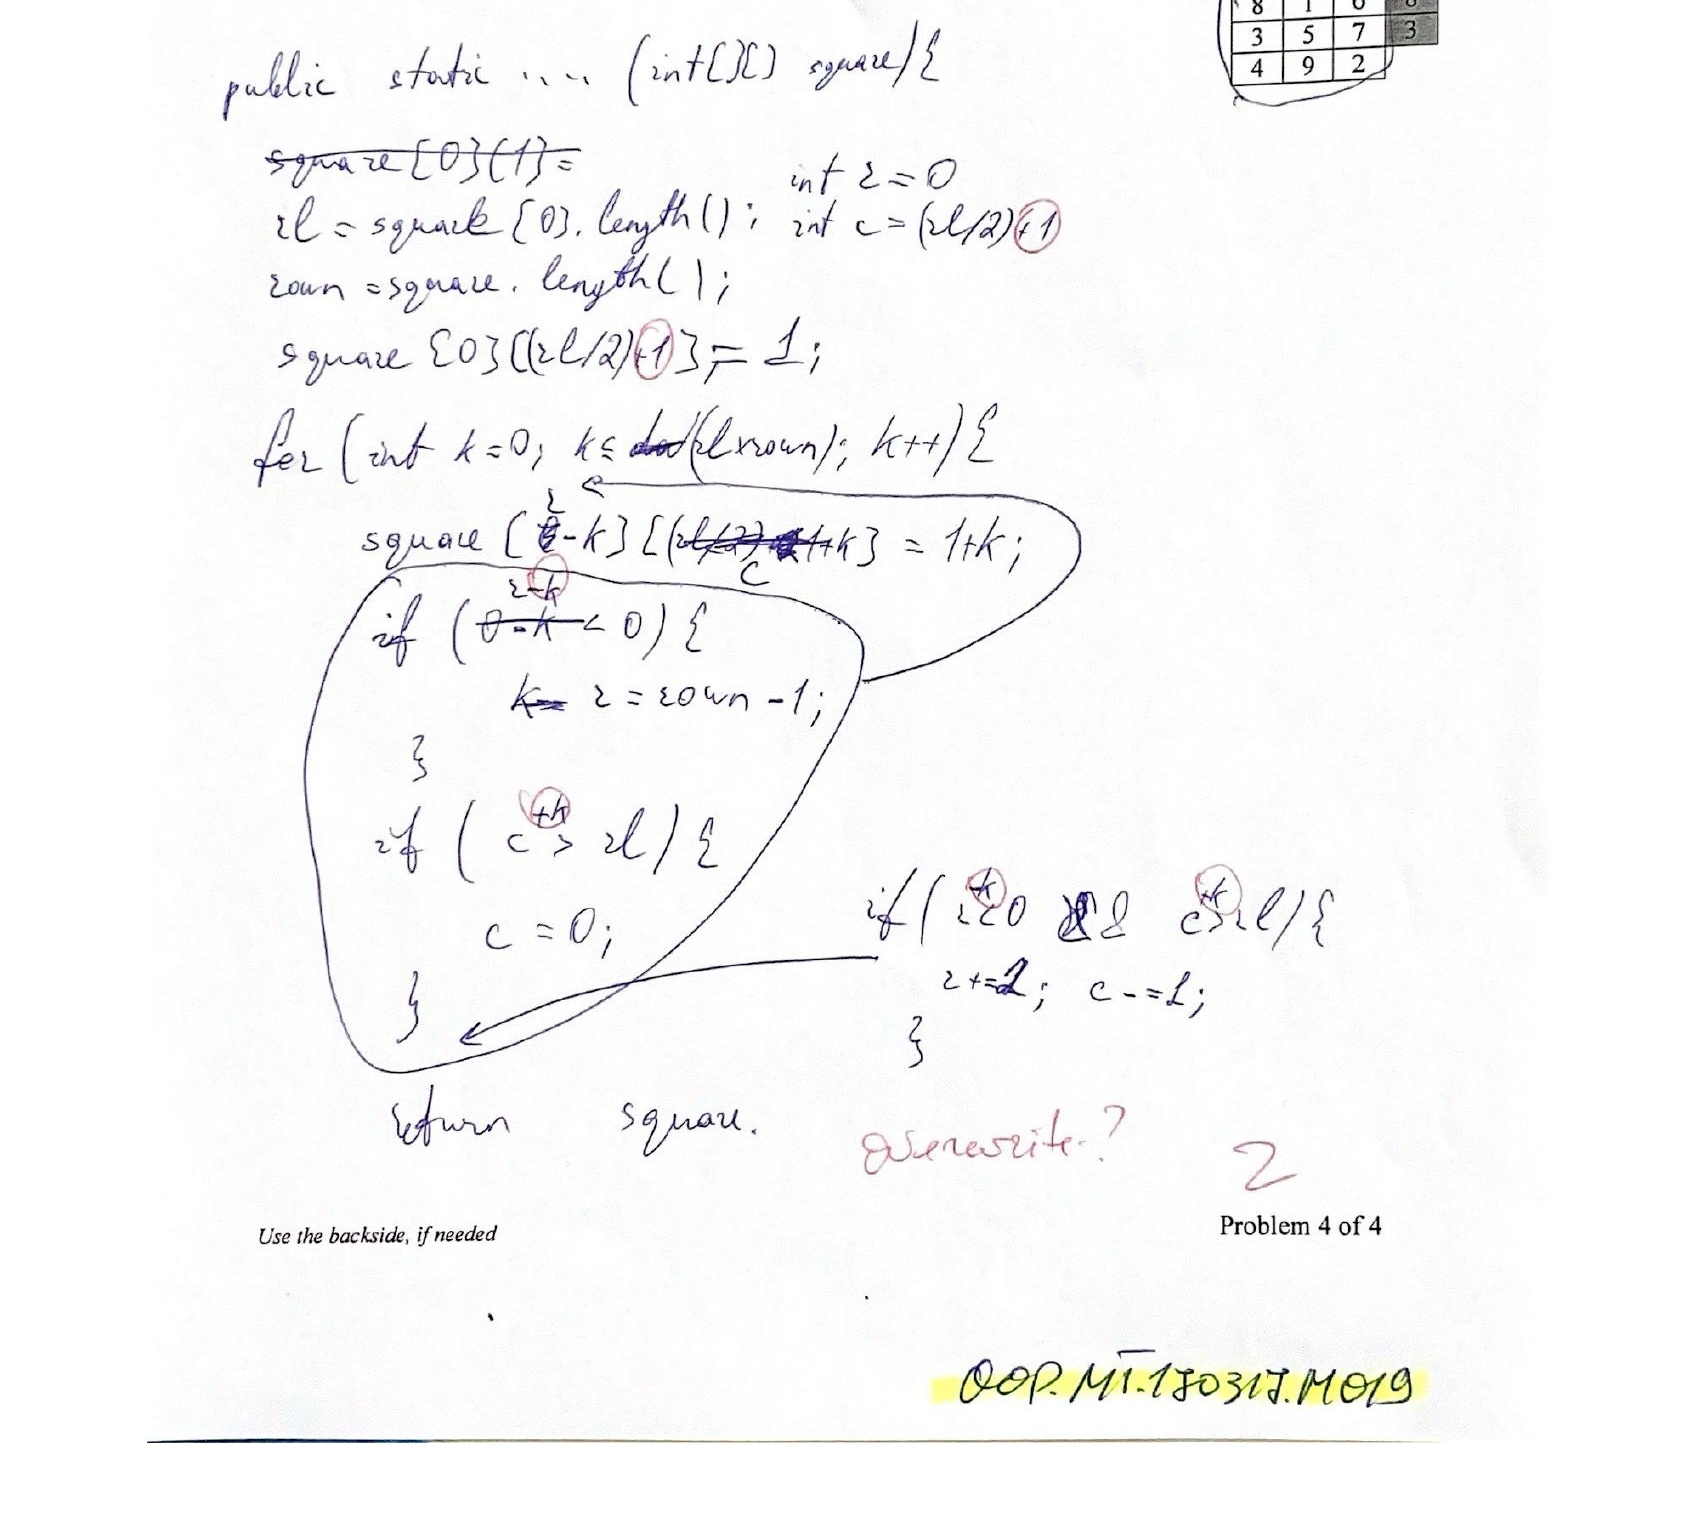 8 1 6 8
3 5 7 3
4 9 2
public static .... (int[][] square){
square[0][1]=
int r=0
rl = square[0].length(); int c=(rl/2)+1
rown =square.length();
square[0][(rl/2)+1] = 1;
for (int k=0; k≤ (rl×rown); k++){
r
square [0-k] [(rl/2)+1+k] = 1+k;
c
r-k
if (0-k < 0) {
k= r = rown -1;
}
if ( c+k > rl) {
c = 0;
}
if (r-k<0 && c+k>rl){
r+=1; c-=1;
}
return square.
overwrite?
2
Use the backside, if needed
Problem 4 of 4
OOP.MT.170317.M019